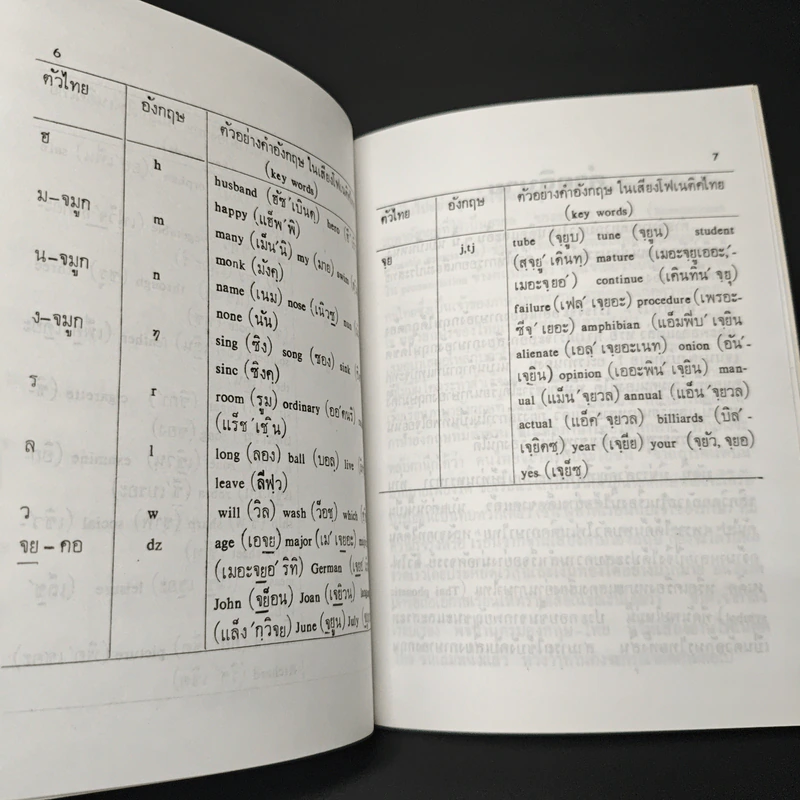 6
ตัวไทย อังกฤษ ตัวอย่างคำอังกฤษ ในเสียงโฟเนติคไทย
(key words)
ฮ h husband (ฮัซ′เบินด)
happy (แฮ็พ′พิ)
ม-จมูก m many (เม็น′นิ) my (มาย)
monk (มังคฺ)
น-จมูก n name (เนม) nose
none (นัน)
ง-จมูก ŋ sing (ซิง) song (ซอง) sink
sinc (ซิงคฺ)
ร r room (รูม) ordinary
(แร็ช′เช็น)
ล l long (ลอง) ball (บอลฺ) live
leave (ลีฟฺว)
ว w will (วิล) wash (ว็อช) which
จฺย - คอ dz age (เอจฺย) major (เม′เจฺยอะ)
(เมอะจฺยอ′ริทิ) German
John (จฺย็อน) Joan (เจฺยิวน)
(แล็ง′กฺวิจฺย) June (จฺยูน) July
7
ตัวไทย อังกฤษ ตัวอย่างคำอังกฤษ ในเสียงโฟเนติคไทย
(key words)
จฺย j,tj tube (จฺยูบ) tune (จฺยูน) student
(สฺจฺยู′เดินทฺ) mature (เมอะจฺยูเออะ,′-
เมอะจฺยอ′) continue (เคินทิน′จฺยุ)
failure (เฟลฺ′เจฺยอะ) procedure (เพรอะ-
ซีจฺ′เยอะ) amphibian (แอ็มฟีบ′เจฺยิน
alienate (เอลฺ′เจฺยอะเนทฺ) onion (อัน′-
เจฺยิน) opinion (เออะพิน′เจฺยิน) man-
ual (แม็น′จฺยวล) annual (แอ็น′จฺยวล)
actual (แอ็ค′จฺยวล) billiards (บิล′-
เจฺยิดซฺ) year (เจฺยีย) your (จฺยัว, จฺยอ)
yes (เจฺย็ซ)